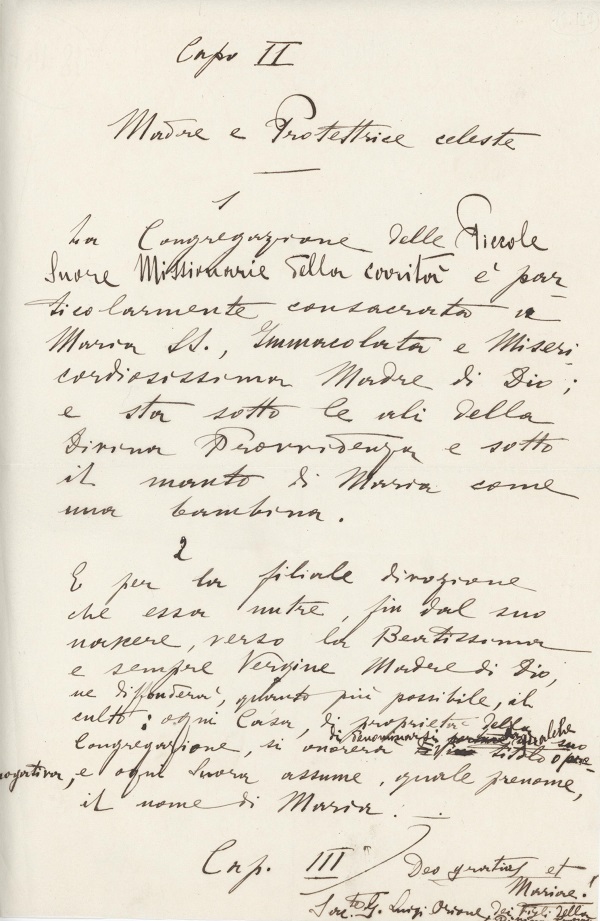 Capo II
Madre e Protettrice celeste
1
La Congregazione delle Piccole
Suore Missionarie della carità è par-
ticolarmente consacrata a
Maria SS., Immacolata e Miseri-
cordiosissima Madre di Dio;
e sta sotto le ali della
Divina Provvidenza e sotto
il manto di Maria come
una bambina.
2
E per la filiale divozione
che essa nutre, fin dal suo
nascere, verso la Beatissima
e sempre Vergine Madre di Dio,
ne diffonderà, quanto più possibile, il
culto: ogni Casa, di proprietà della
di denominarsi da qualche
Congregazione, si onorerà titolo o prero-
suo
rogativa, e ogni Suora assume, quale prenome,
il nome di Maria.
Cap. III Deo gratias et
Mariae!
Sac. G. Luigi Orione dei Figli della